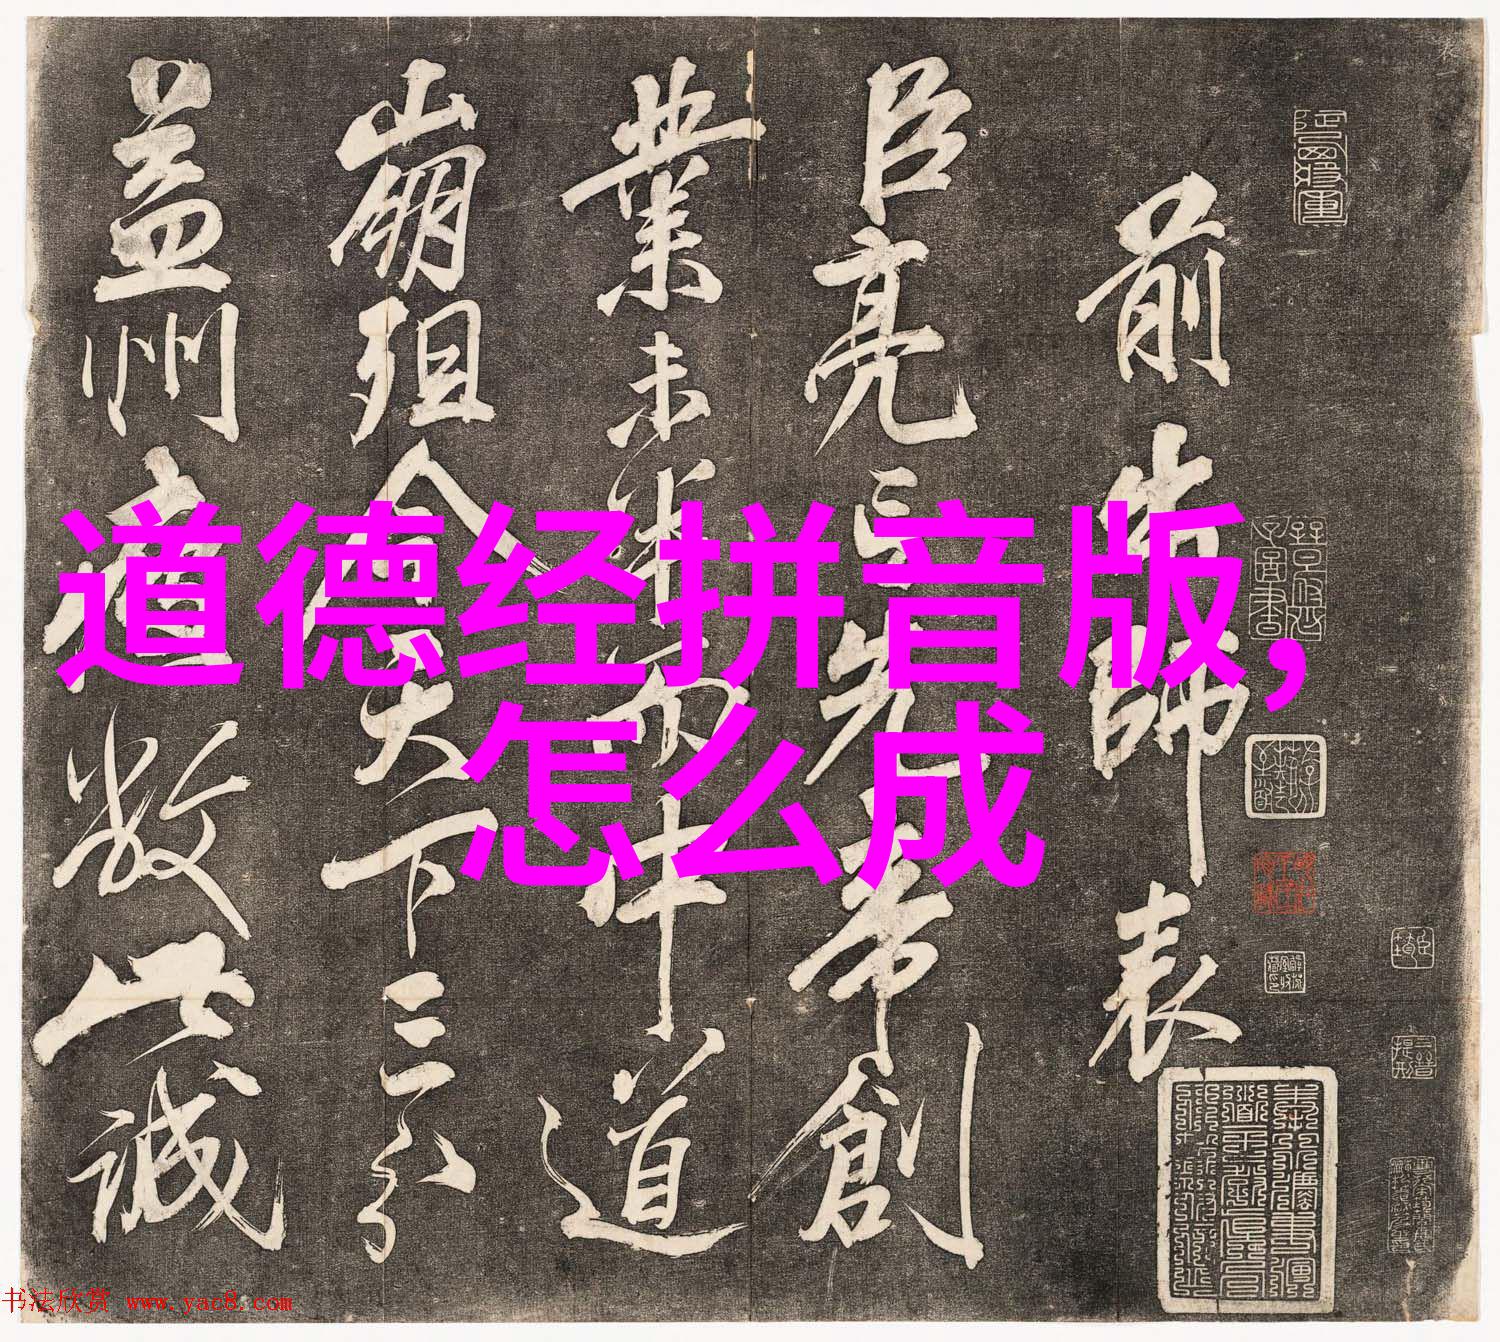 前出師表
臣亮言先帝創
業未半而中道
崩殂今天下三分
益州疲敝此誠
道德经拼音版,
怎么成
书法欣赏 www.yac8.com